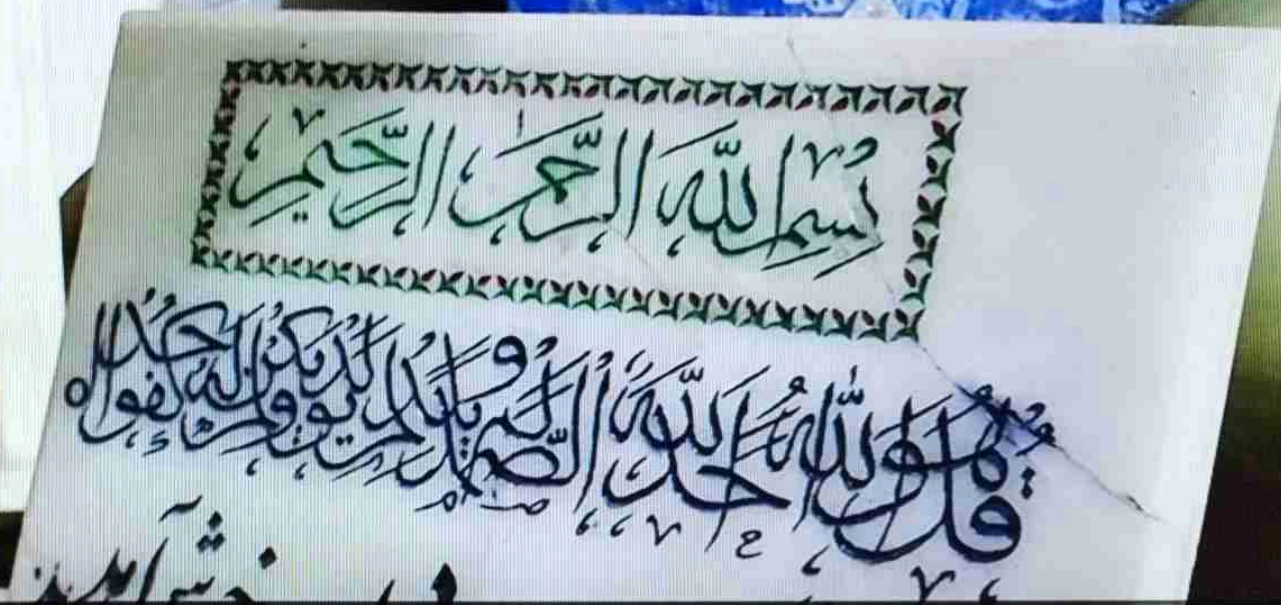 بسم الله الرحمن الرحيم
قل هو الله احد الله الصمد لم يلد ولم يولد ولم يكن له كفوا احد
خوش آمدید